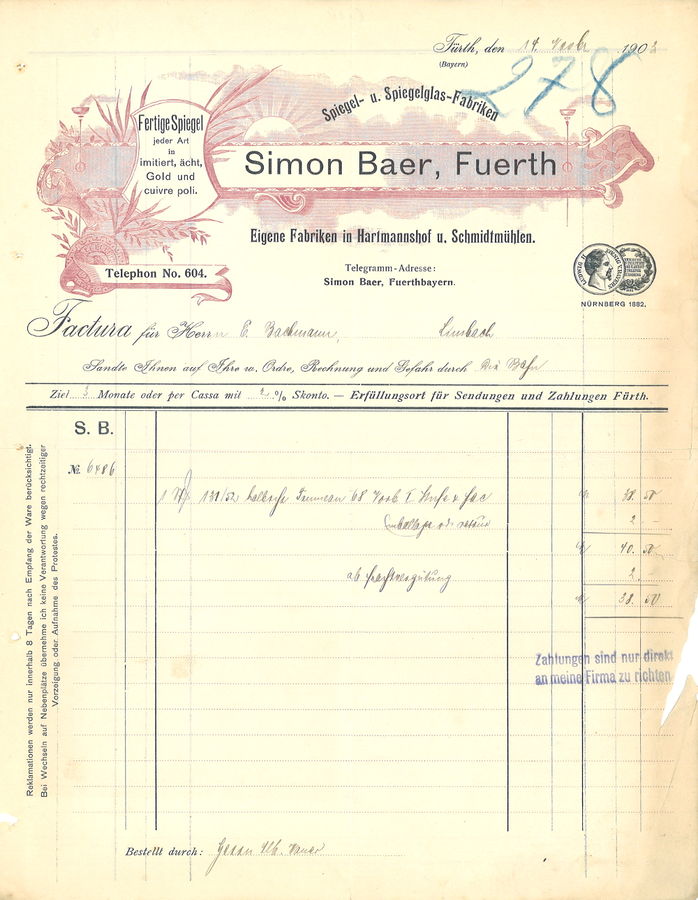 Fürth, den 14. Novbr 190
(Bayern)
278
Spiegel- u. Spiegelglas-Fabriken
Fertige Spiegel
jeder Art
in
imitiert, ächt,
Gold und
cuivre poli.
Simon Baer, Fuerth
Eigene Fabriken in Hartmannshof u. Schmidtmühlen.
Telephon No. 604.
Telegramm-Adresse:
Simon Baer, Fuerthbayern.
NÜRNBERG 1882.
Factura für Herrn E. Backmann, Limbach
Sandte Ihnen auf Ihre w. Ordre, Rechnung und Gefahr durch die Bahn
Ziel 3 Monate oder per Cassa mit 2 % Skonto. — Erfüllungsort für Sendungen und Zahlungen Fürth.
S. B.
№ 6486
1 131/52 68 38. 50
Emballage 2. -
40. 50
ab Frachtvergütung 2.
38. 50
Zahlungen sind nur direkt
an meine Firma zu richten
Reklamationen werden nur innerhalb 8 Tagen nach Empfang der Ware berücksichtigt.
Bei Wechseln auf Nebenplätze übernehme ich keine Verantwortung wegen rechtzeitiger
Vorzeigung oder Aufnahme des Protestes.
Bestellt durch: Herrn